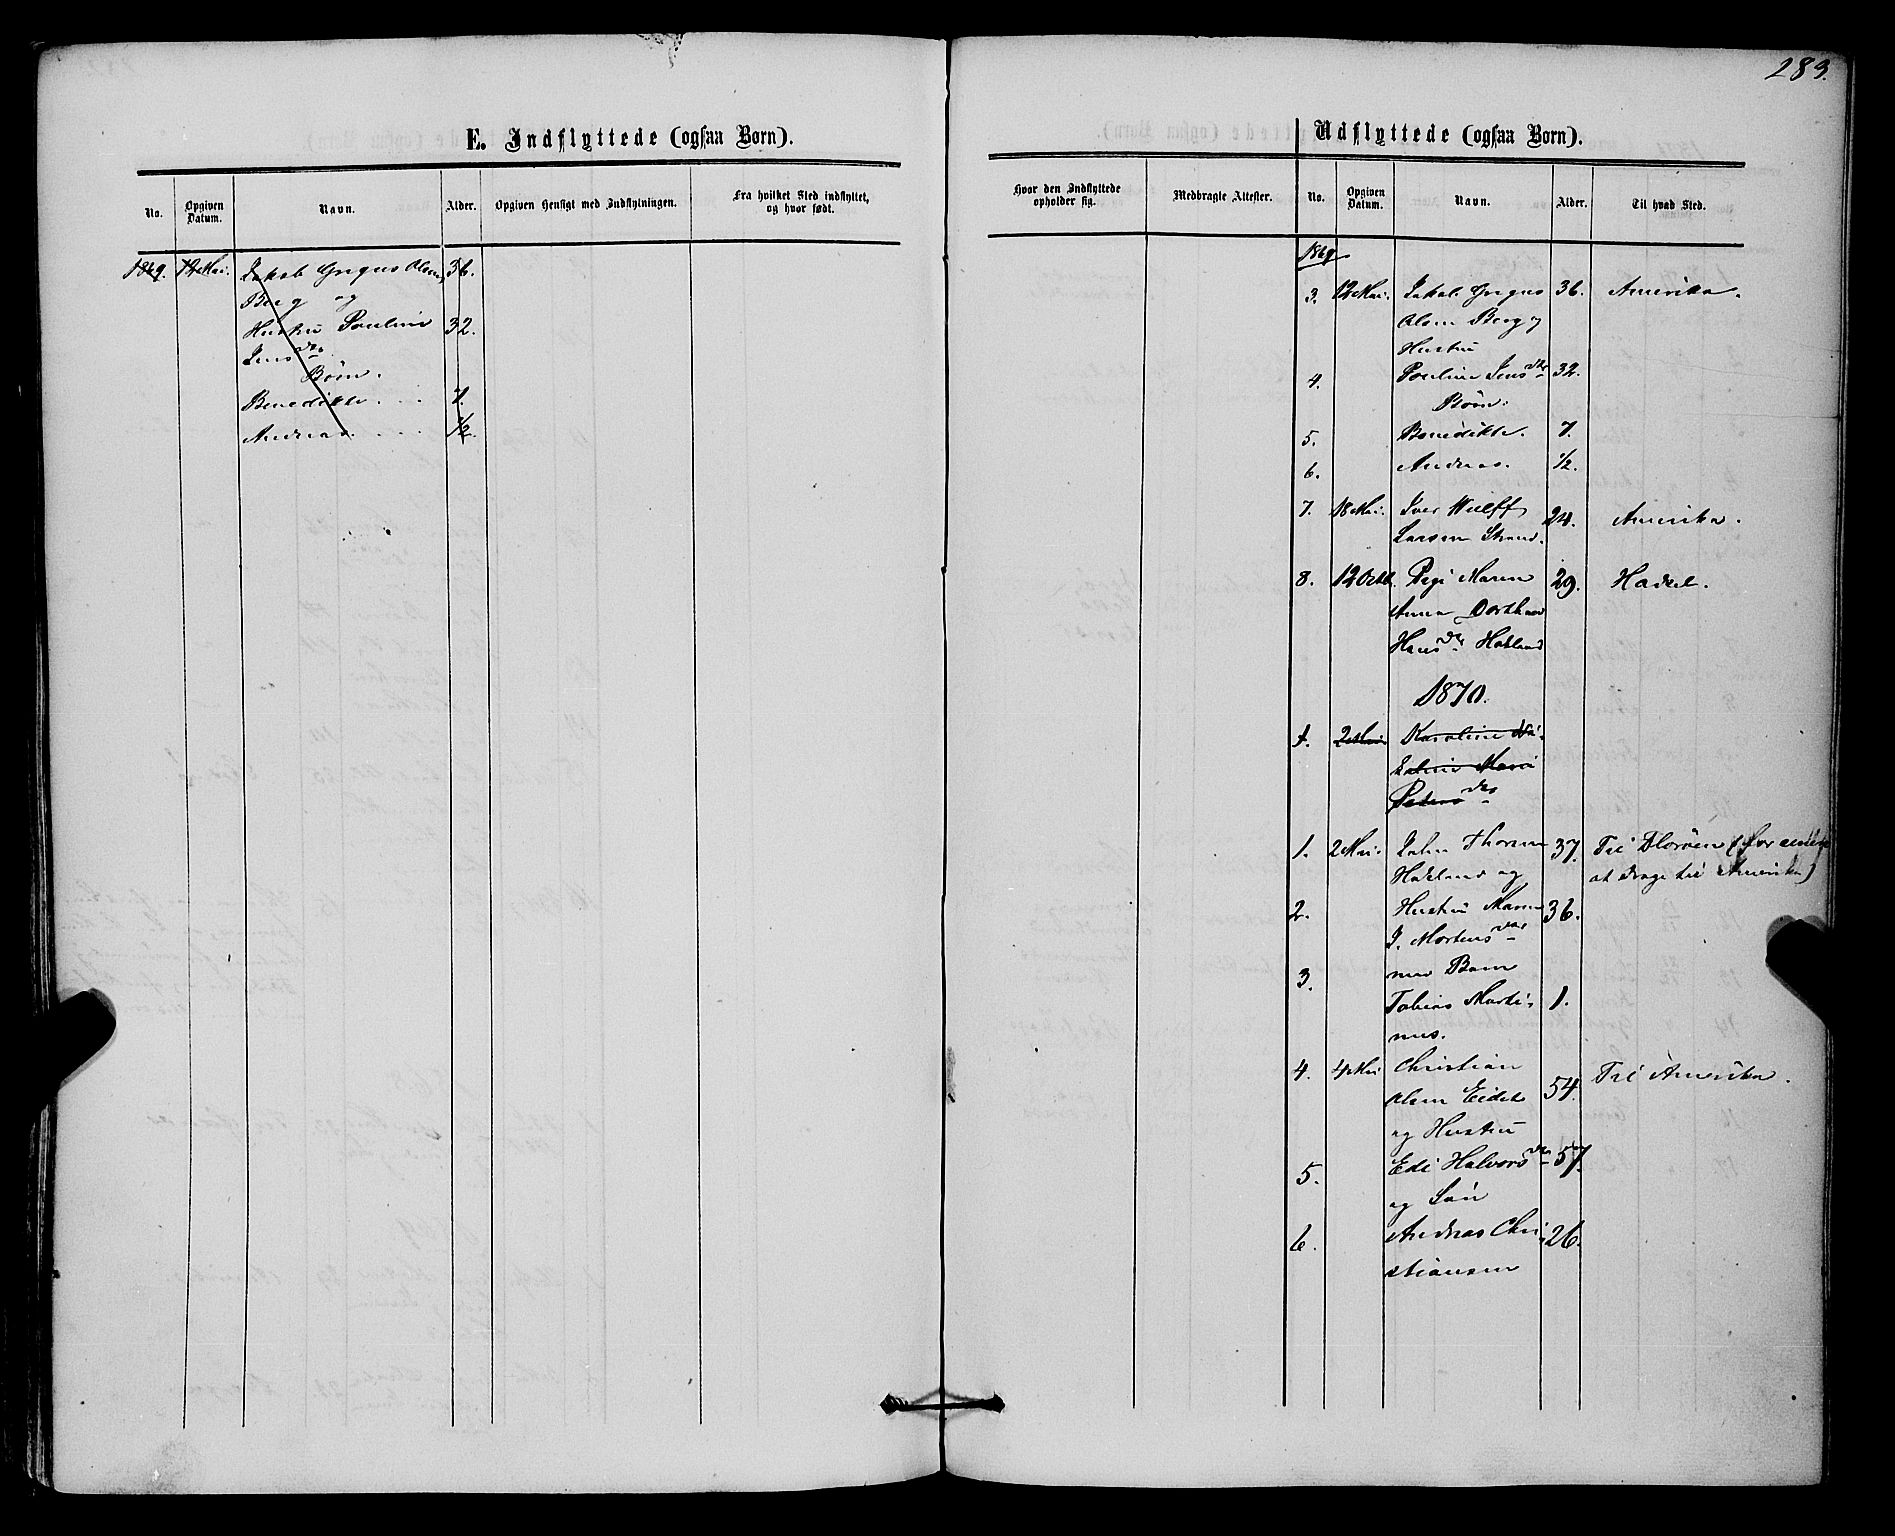 283.
E. Indflyttede (ogsaa Børn).
No.
Opgiven Datum.
Navn.
Alder.
Opgiven Hensigt med Indflytningen.
Fra hvilket Sted indflyttet, og hvor født.
1869. 12 Mai. Jakob Gregus Olsen 36.
Berg og
Hustru Pauline 32.
Jensdtr
Børn.
Benedikte. . . . 7.
Andreas. . . . 1/2.
Udflyttede (ogsaa Børn).
Hvor den Indflyttede opholder sig.
Medbragte Attester.
No.
Opgiven Datum.
Navn.
Alder.
Til hvad Sted.
1869
3. 12 Mai. Jakob Gregus 36. Amerika.
Olsen Berg og
Hustru
4. Pauline Jensdtr 32.
Børn.
5. Benedikte. 7.
6. Andreas. 1/2.
7. 18 Mai. Iver Wulff 24. Amerika.
Larsen Strand.
8. 12 Octb. Pige Maren 29. Hadsel.
Anna Dorthea
Hansdtr Hokland
1870.
1. 2 Mai Karoline
Marie
Pedersdtr
1. 2 Mai. Johan Thorsen 37. Til (for senere
Hokland og at drage til Amerika)
2. Hustru Maren 36.
J. Mortensdtr
3. med Barn
Tobias Marti- 1.
nus.
4. 4 Mai Christian
Olsen Eidet 54. Til Amerika.
og Hustru
5. Edi Halvorsdtr 57.
og Søn
6. Andreas Chri- 26.
stiansen